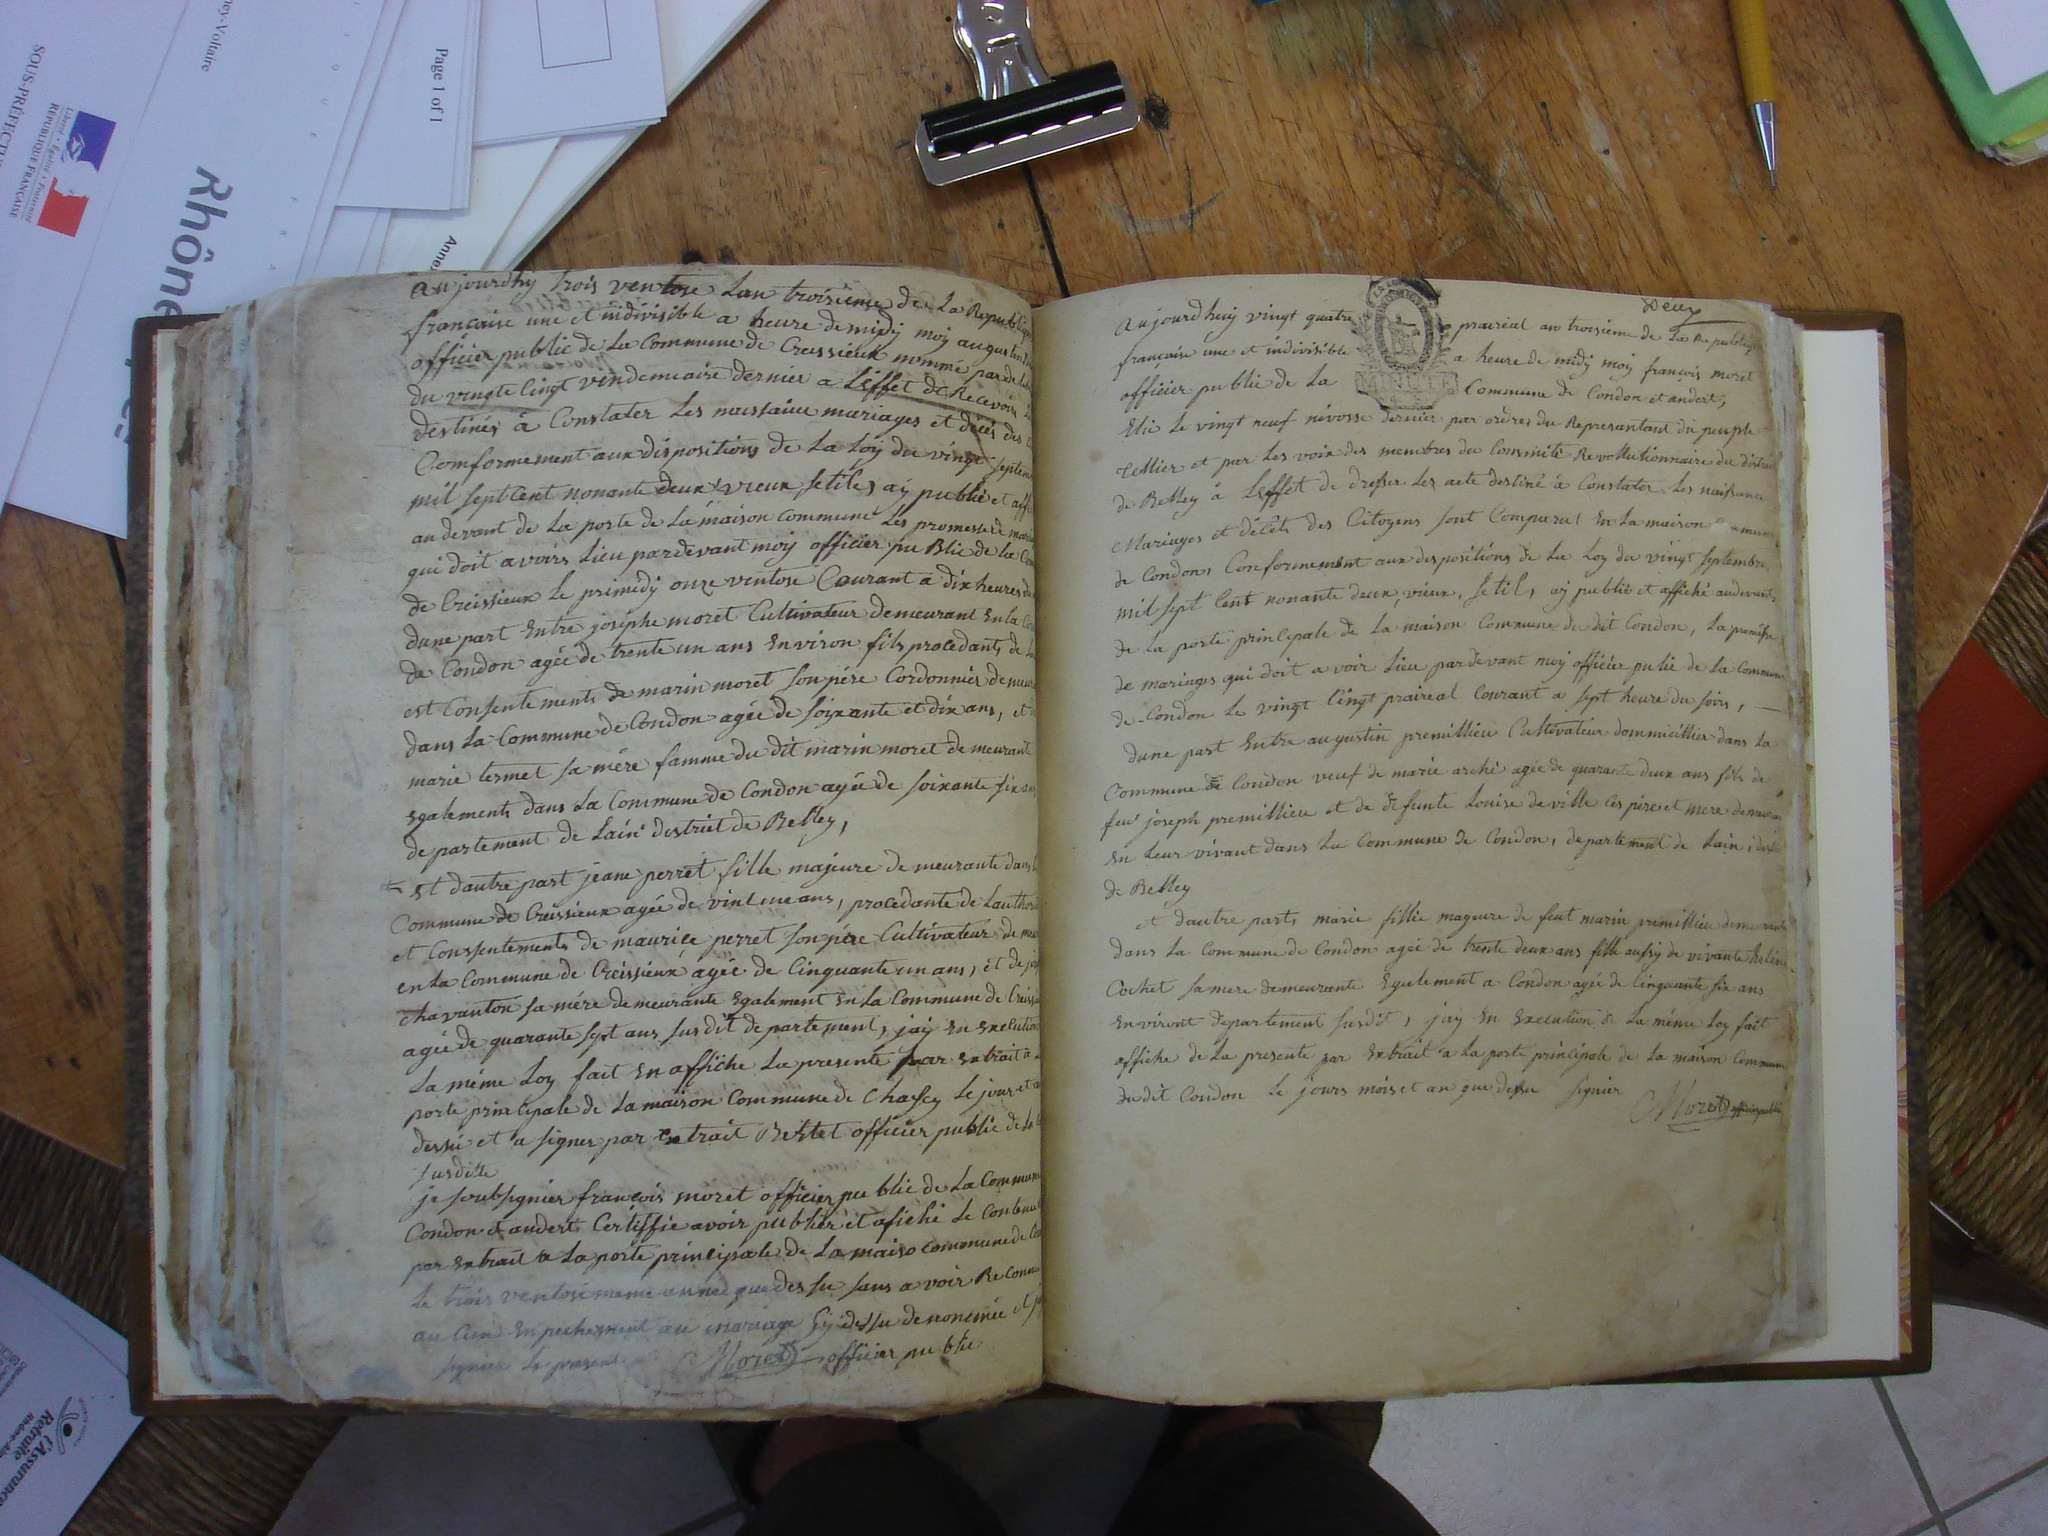 SOUS-PRÉFECTU
Liberté • Égalité • Fraternité
RÉPUBLIQUE FRANÇAISE
ney-Voltaire
Rhône
Page 1 of 1
Anne
l'Assurance
Retraite
Rhône-Al
aujourdhuy trois ventose Lan troisieme de La Republiq
française une et indivisible a heure de midy moy augustin
officier public de La Commune de Cressieux nommé par de
du vingte cinqt vendemiaire dernier a Leffet de Recevoir
destinés à Constater Les naissance mariages et décés des
Comformement aux dispositions de La Loy du vingt septem
mil sept Cent nonante deux vieux stile, aÿ publié et aff
au devant de La porte de La maison commune Les promesse de maria
qui doit avoirs Lieu pardevant moy officier pu Blic de La Com
de Creissieux Le primedy onze ventose Courant a dix heures du
dune part Entre joséphe moret Cultivateur demeurant En la Co
de Condon agée de trente un ans Environ fils procedants de
est Consentements de marin moret son pére Cordonnier demeur
dans La Commune de Condon agée de soixante et dix ans, et
marie termet sa mére famme du dit marin moret demeurant
egalements dans La Commune de Condon agée de soixante six ans
departement de Lain district de Belley,
et dautre part jeane perret fille majeure de meurante dans
Commune de Creissieux agée de vint une ans, procedante de Lauthori
et Consentements de maurice perret son pére Cultivateur de meu
en La Commune de Creissieux agée de Cinquante un ans, et de
chavanton sa mére demeurante Egalement En La Commune de Creissi
agée de quarante sept ans susdit departement, jaÿ En Execution
La méme Loy fait En affiche La presente par Extrait a
porte principale de La maison Commune de Chassey Le jour et
dessu et a signer par Extrait Bertet officier public de
susditte
je soubsignier françois moret officier pu blic de La Commune
Condon et andert Certiffie avoir publier et afiché Le Contenu
par Extrait a La porte principale de La maiso commune de
Le trois ventose meme année que dessu sans avoir Reconnu
au Cun Enpechement au mariage Cy dessu denommée et
signier Le present Moret officier public
Deux
MINUTE
Aujourdhuy vingt quatre prairial an troisieme de La Republiq
française une et indivisible a heure de midy moy françois moret
officier public de La Commune de Condon et andert,
Elie Le vingt neuf nivosse dernier par ordres du Represantant du peuple
tellier et par Les voix des membres du Commité Revollutionnaire du distric
de Belley à Leffet de dresser Les acte destiné à Constater Les naissance
Mariages et décéts des Citoyens sont Comparu En La maison
de Condon, Conformement aux despositions de La Loy du vingt septembre
mil sept Cent nonante deux, vieux, stil, aÿ publié et affiché audevant
de La porte principale de La maison Commune du dit Condon, La
de mariages qui doit avoir Lieu pardevant moy officier pulic de La Commune
de Condon Le vingt Cinqt prairial Courant a sept heure du soirs,
dune part Entre augustin premillieu Cultivateur dommicillier dans La
Commune de Condon veuf de marie arché agée de quarante deux ans fils de
feu joseph premillieu et de defunte Louise de ville Ces pére et mere
En Leur vivant dans La Commune de Condon, departement de Lain,
de Belley
et dautre part, marie fillie mageure de feut marin premillieu
dans La Commune de Condon agée de trente deux ans fille aussy de vivante
Cochet sa mere demeurante Egalement a Condon agée de Cinquante six ans
Environt departement susdit, jaÿ En Execution de La méme Loy fait
affiche de La presente par Extrait a La porte principale de La maison Commune
du dit Condon Le jours mois et an que dessu signier
Moret officier public